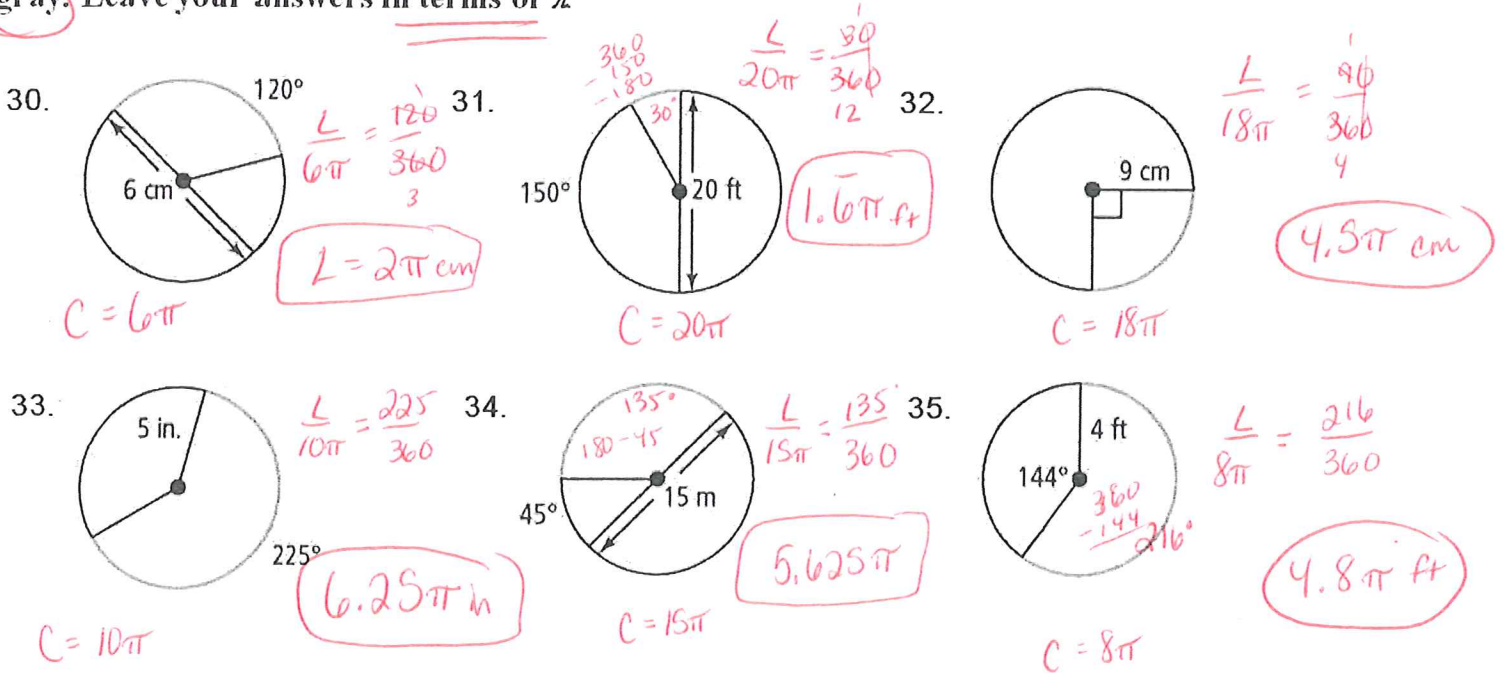 gray. Leave your answers in terms of π
30.
120°
6 cm
L/6π = 120/360
1
3
L = 2π cm
C = 6π
31.
360
-150
-180
30°
150°
20 ft
L/20π = 30/360
1
12
1.6̅π ft
C = 20π
32.
9 cm
L/18π = 90/360
1
4
4.5π cm
C = 18π
33.
5 in.
225°
L/10π = 225/360
6.25π in
C = 10π
34.
135°
180-45
45°
15 m
L/15π = 135/360
5.625π
C = 15π
35.
4 ft
144°
360
-144
216°
L/8π = 216/360
4.8π ft
C = 8π